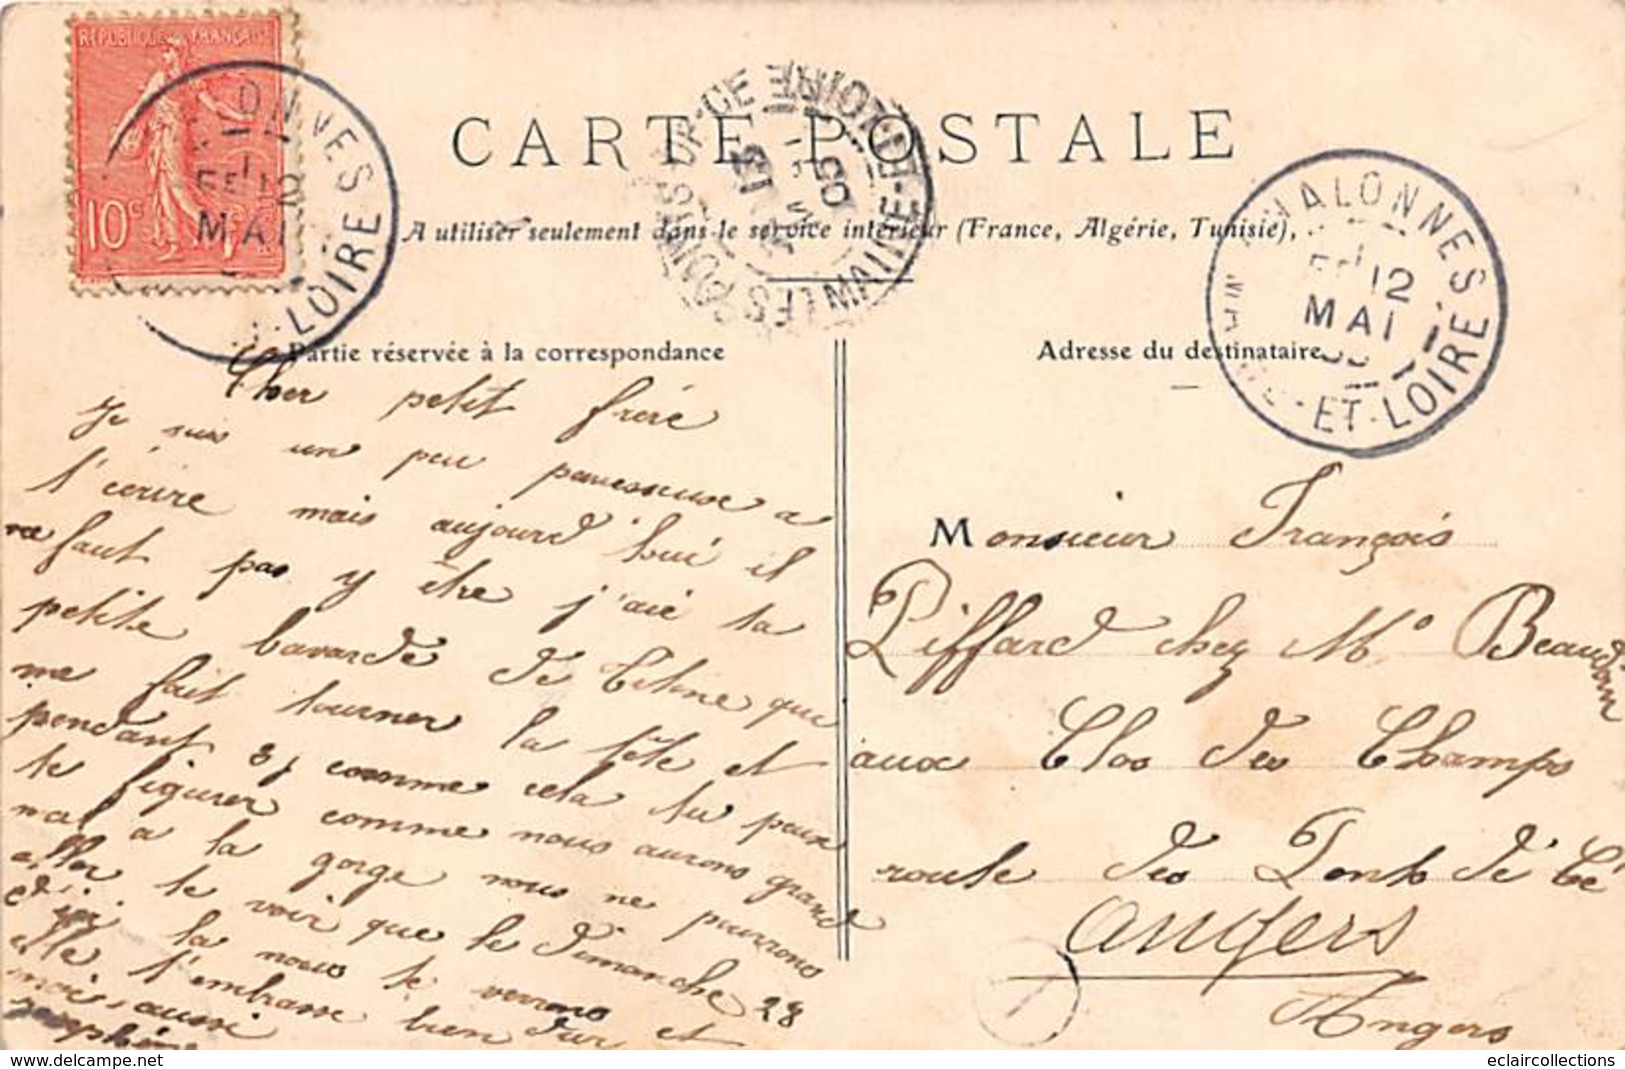 RÉPUBLIQUE FRANÇAISE
10c
CARTE POSTALE
A utiliser seulement dans le service intérieur (France, Algérie, Tunisie),
CHALONNES
12
MAI
MAINE-ET-LOIRE
12
MAI
LOIRE
LES PONTS-DE-CÉ MAINE-ET-LOIRE
Partie réservée à la correspondance
Cher petit frère
Je suis un peu paresseuse a
t'écrire mais aujourd'hui il
ne faut pas y être j'ai ta
petite bavarde de Céline que
me fait tourner la tête et
pendant comme cela tu peux
te figurer comme nous aurons grand
mal a la gorge nous ne pourrons
aller te voir que le Dimanche 28
d'ici la nous te verrons
elle t'embrasse bien dur et
moi aussi
Adresse du destinataire
Monsieur François
Piffard chez Mr Beaudoin
aux Clos des Champs
route des Ponts de Cé
Angers
Angers
eclaircollections